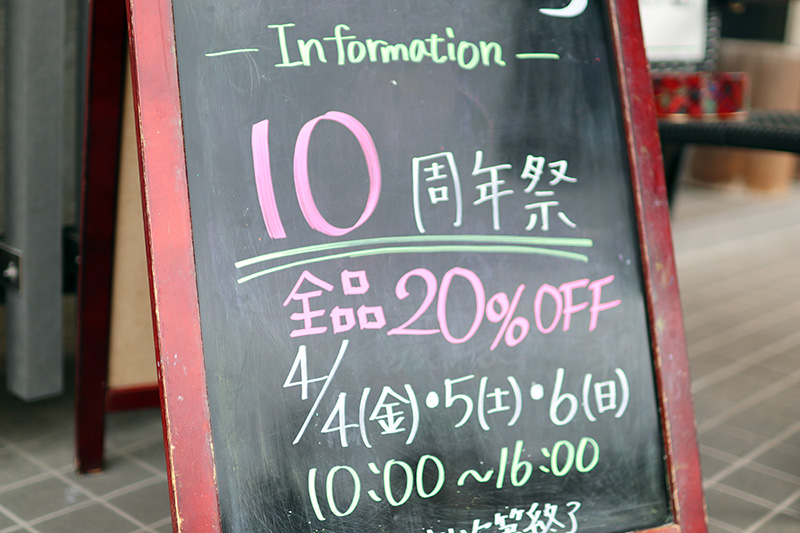 — Information —
10周年祭
全品20%OFF
4/4(金)・5(土)・6(日)
10:00~16:00
次第終了